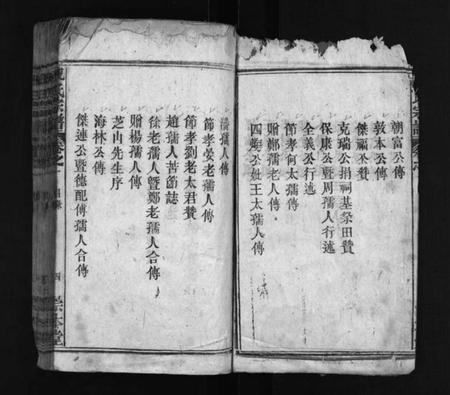 朝富公傳
敦本公傳
傑福公贊
克瑞公捐祠基祭田贊
保康公暨周孺人行述
全義公行述
節孝何太孺傳
贈鄭孺老人傳
四公妣王太孺人傳
孺人傳
節孝晏老孺人傳
節孝劉老太君贊
趙孺人苦節誌
徐老孺人暨鄭老孺人合傳
贈楊孺人傳
芝山先生序
海林公傳
傑連公暨德配傅孺人合傳
目錄
四
崇本堂